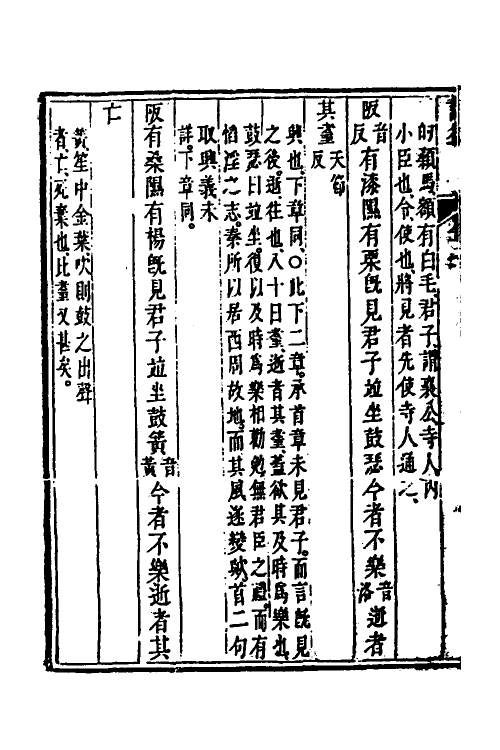 的顙馬額有白毛君子謂襄公寺人内
小臣也令使也將見者先使寺人通之
阪音反有漆隰有栗旣見君子竝坐鼓瑟今者不樂音洛逝者
其耋天節反
興也下章同○此下二章承首章未見君子而言旣見
之後逝往也八十曰耋逝者其耋蓋欲其及時爲樂也
鼓瑟曰竝坐復以及時爲樂相勸勉無君臣之禮而有
慆淫之志秦所以居西周故地而其風遂變歟首二句
取興義未
詳下章同。
阪有桑隰有楊旣見君子竝坐鼓簧音黃今者不樂逝者其
亡
簧笙中金葉吹則鼓之出聲
者亡死棄也比耋又甚矣。